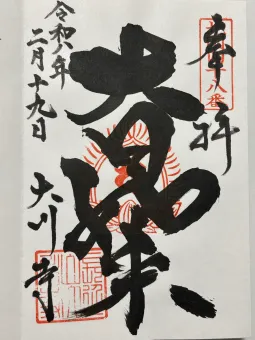 奉拝
八番
大日如来
令和八年
二月十九日
大川寺